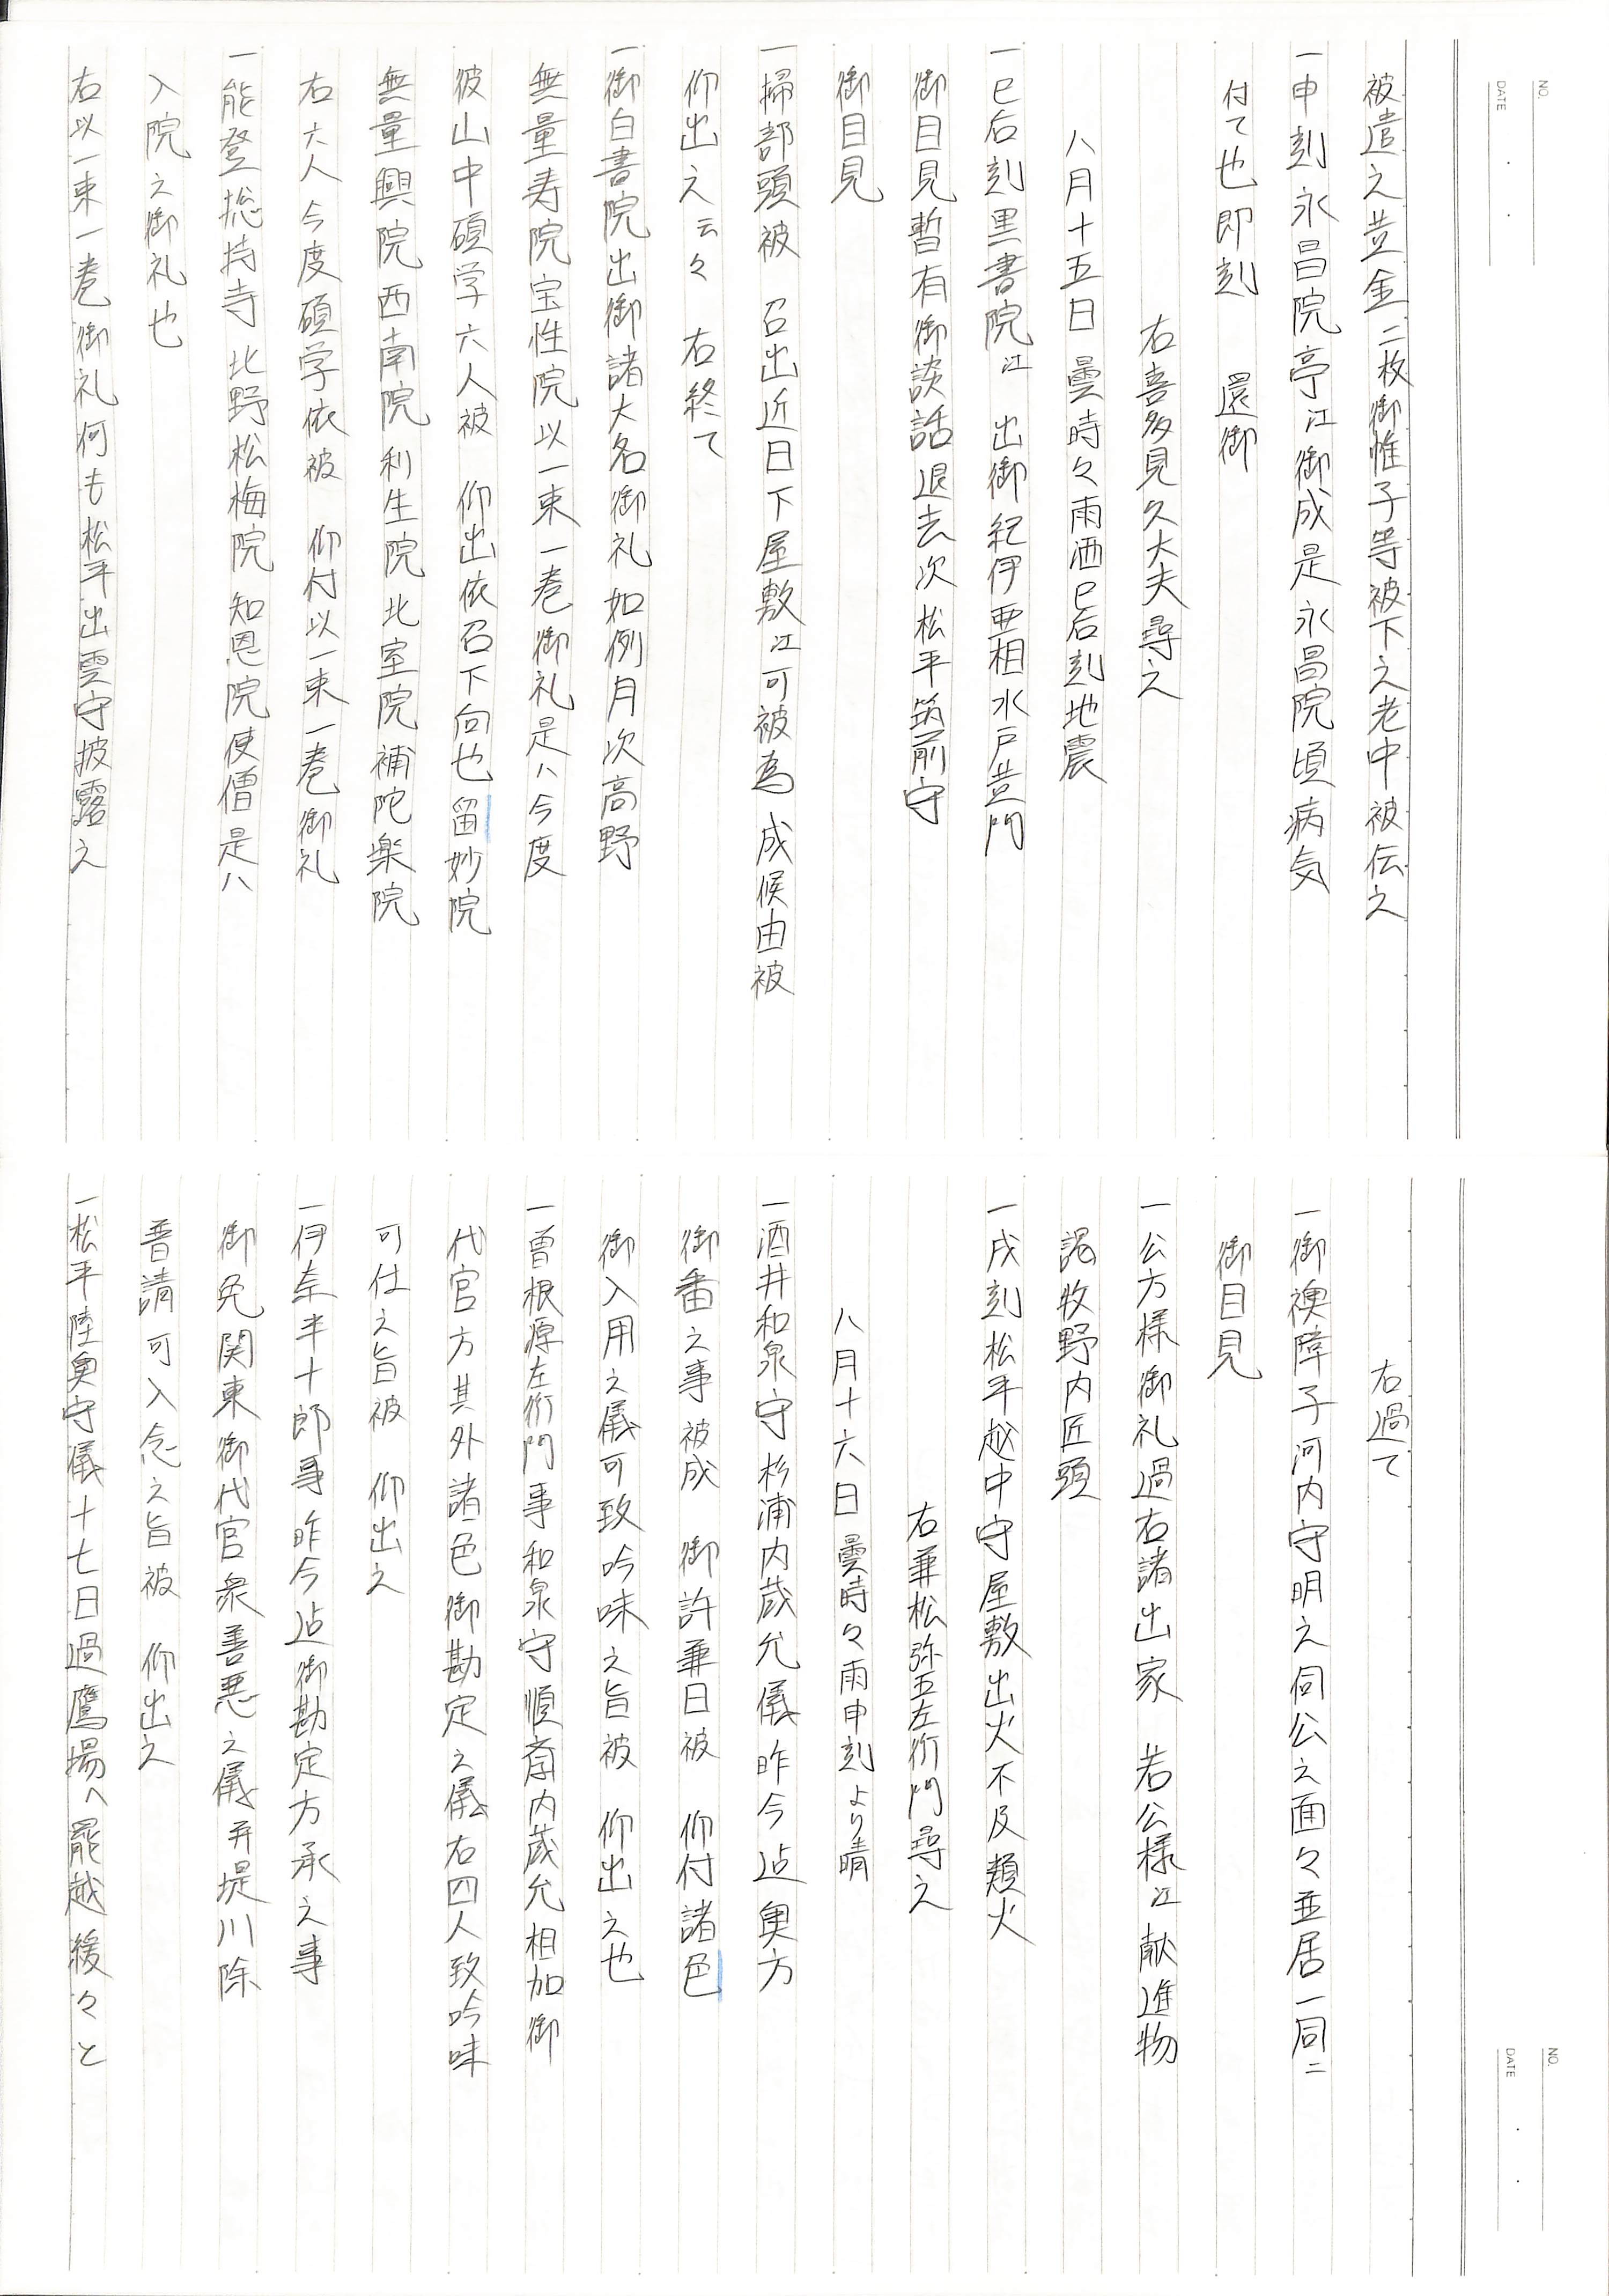 NO.
DATE
被遣之並金二枚御帷子等被下之老中被伝之
一申刻永昌院亭江御成是永昌院頃病気
付て也即刻　還御
右喜多見久大夫尋之
八月十五日 曇時々雨洒巳后刻地震
一巳后刻黒書院江　出御紀伊亜相水戸黄門
御目見暫有御談話退去次松平筑前守
御目見
一掃部頭被　召出近日下屋敷江可被為 成候由被
仰出之云々　右終て
一御白書院出御諸大名御礼如例月次高野
無量寿院宝性院以一束一巻御礼是ハ今度
彼山中碩学六人被　仰出依召下向也留妙院
無量興院西南院利生院北室院補陀楽院
右六人今度碩学依被　仰付以一束一巻御礼
一能登総持寺 北野松梅院 知恩院使僧是ハ
入院之御礼也
右以一束一巻御礼何も松平出雲守披露之
NO.
DATE
右過て
一御襖障子河内守明之伺公之面々並居一同ニ
御目見
一公方様御礼過右諸出家　若公様江献進物
謁牧野内匠頭
一戌刻松平越中守屋敷出火不及類火
右兼松弥五左衛門尋之
八月十六日 曇時々雨申刻より晴
一酒井和泉守杉浦内蔵允儀昨今迠奥方
御番之事被成　御許兼日被　仰付諸色
御入用之儀可致吟味之旨被　仰出之也
一曽根源左衛門事和泉守順斎内蔵允相加御
代官方其外諸色御勘定之儀右四人致吟味
可仕之旨被　仰出之
一伊奈半十郎事昨今迠御勘定方承之事
御免関東御代官衆善悪之儀并堤川除
普請可入念之旨被　仰出之
一松平陸奥守儀十七日過鷹場へ罷越緩々と